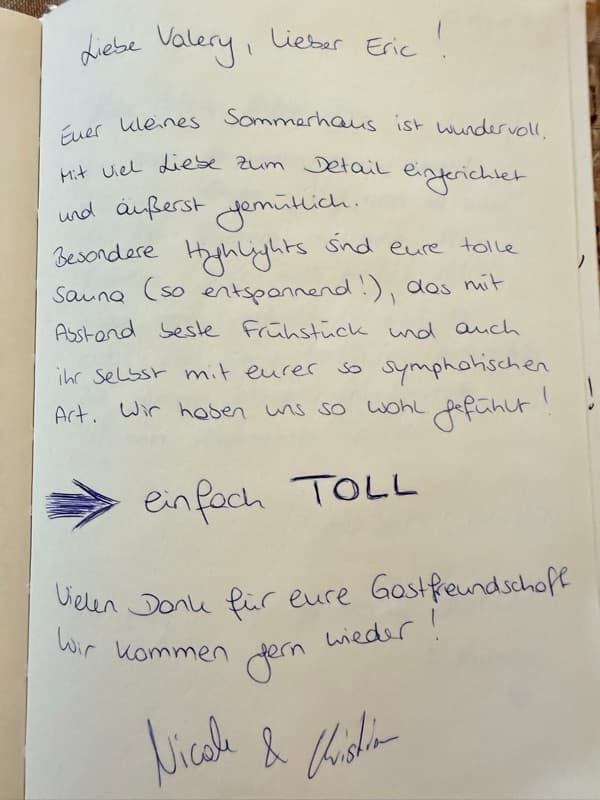 Liebe Valery, lieber Eric!
Euer kleines Sommerhaus ist wundervoll.
Mit viel Liebe zum Detail eingerichtet
und äußerst gemütlich.
Besondere Highlights sind eure tolle
Sauna (so entspannend!), das mit
Abstand beste Frühstück und auch
ihr selbst mit eurer so symphatischen
Art. Wir haben uns so wohl gefühlt!
einfach TOLL
Vielen Dank für eure Gastfreundschaft
Wir kommen gern wieder!
Nicole & Christian